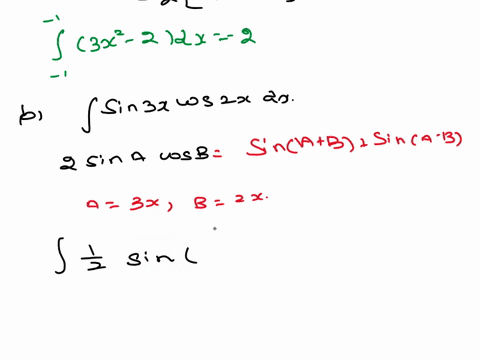 -1
∫ (3x² - 2) 2x = -2
-1
b) ∫ Sin 3x cos 2x 2x.
2 sin A cos B = Sin(A+B) + Sin(A-B)
A = 3x, B = 2x.
∫ 1/2 sin (